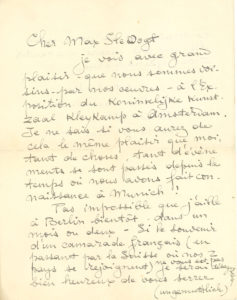 Cher Max
je vois, avec grand
plaisir, que nous sommes voi-
sins - par nos œuvres - à l'Ex-
position du Koninklijke Kunst
zaal Kleykamp à Amsterdam.
Je ne sais si vous aurez de
cela le même plaisir que moi,
tant de choses, tant d'évène
ments se sont passés depuis le
temps où nous avons fait con-
naissance à Munich !
Pas impossible que j'aille
à Berlin bientôt - dans un
mois ou deux - Si le souvenir
d'un camarade français (en
passant par la Suisse où nos 2
pays se rejoignent) ne vous est pas
je serai
bien heureux de vous serrer
(ungemütlich)